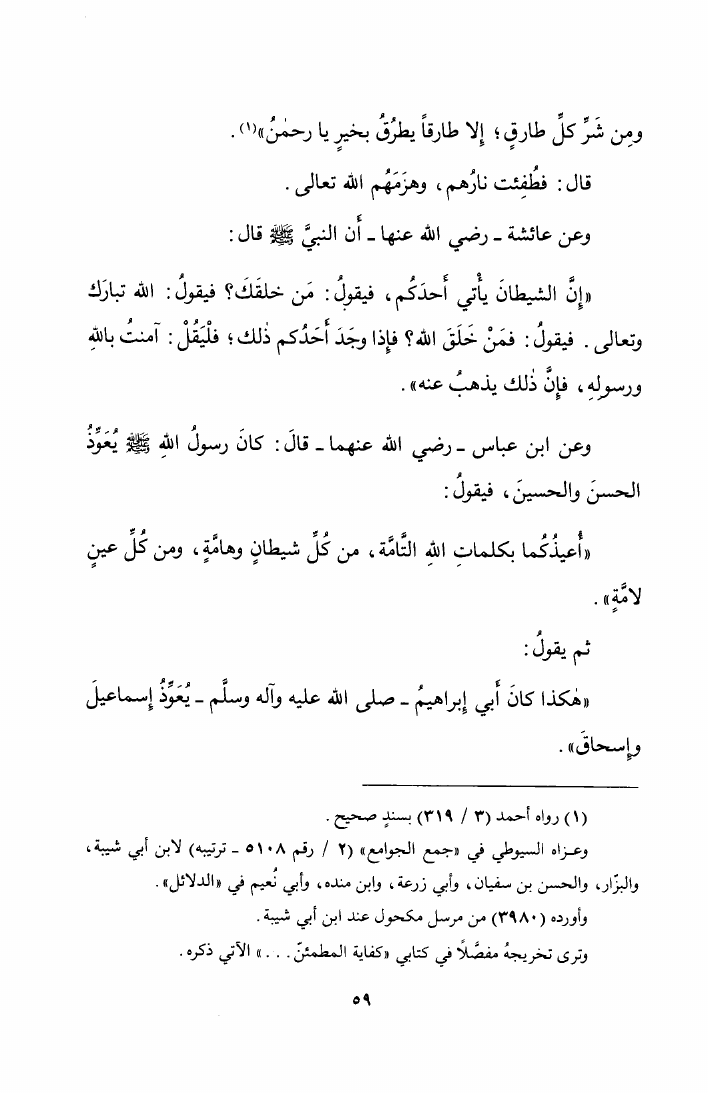 ومِن شَرِّ كلِّ طارقٍ؛ إلا طارقاً يطرُقُ بخيرٍ يا رحمٰنُ»(١).
قال: فطُفِئت نارُهم، وهزَمَهُم الله تعالى.
وعن عائشة ـ رضي الله عنها ـ أن النبيَّ ﷺ قال:
«إنَّ الشيطانَ يأْتي أَحدَكُم، فيقولُ: مَن خلقَكَ؟ فيقولُ: الله تبارَكَ
وتعالى. فيقولُ: فمَنْ خَلَقَ الله؟ فإذا وجَدَ أَحَدُكم ذٰلك؛ فلْيَقُلْ: آمنتُ باللهِ
ورسولِهِ، فإنَّ ذٰلك يذهبُ عنه».
وعن ابن عباس ـ رضي الله عنهما ـ قالَ: كانَ رسولُ اللهِ ﷺ يُعَوِّذُ
الحسنَ والحسينَ، فيقولُ:
«أُعيذُكُما بكلماتِ اللهِ التَّامَّة، من كُلِّ شيطانٍ وهامَّةٍ، ومن كُلِّ عينٍ
لامَّةٍ».
ثم يقولُ:
«هٰكذا كانَ أَبي إبراهيمُ ـ صلى الله عليه وآله وسلَّم ـ يُعَوِّذُ إسماعيلَ
وإسحاقَ».
(١) رواه أحمد (٣ / ٣١٩) بسندٍ صحيح.
وعزاه السيوطي في «جمع الجوامع» (٢ / رقم ٥١٠٨ ـ ترتيبه) لابن أبي شيبة،
والبزّار، والحسن بن سفيان، وأبي زرعة، وابن منده، وأبي نُعيم في «الدلائل».
وأورده (٣٩٨٠) من مرسل مكحول عند ابن أبي شيبة.
وترى تخريجهُ مفصَّلًا في كتابي «كفاية المطمئنّ...» الآتي ذكره.
٥٩